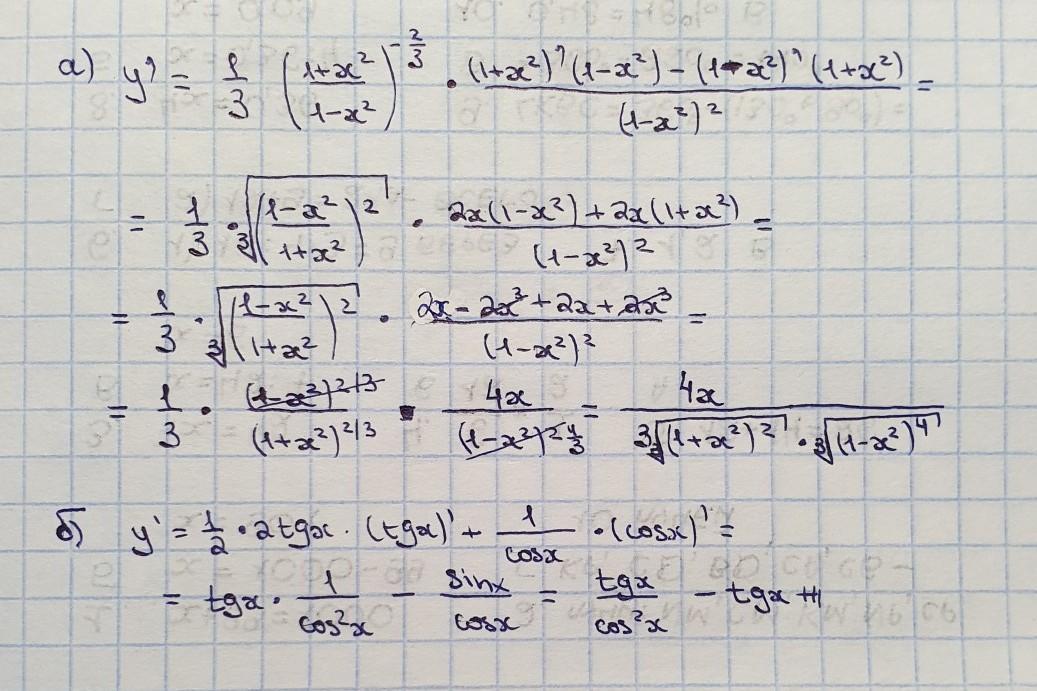 а) y' = 1/3 ((1+x²)/(1-x²))^(-2/3) · ((1+x²)'(1-x²) - (1-x²)'(1+x²))/(1-x²)² =
= 1/3 · ∛((1-x²)/(1+x²))² · (2x(1-x²) + 2x(1+x²))/(1-x²)² =
= 1/3 · ∛((1-x²)/(1+x²))² · (2x - 2x³ + 2x + 2x³)/(1-x²)² =
= 1/3 · (1-x²)^(2/3)/(1+x²)^(2/3) · 4x/(1-x²)^(2 4/3) = 4x/(3∛(1+x²)² · ∛(1-x²)⁴)
б) y' = 1/2 · 2tgx · (tgx)' + 1/cosx · (cosx)' =
= tgx · 1/cos²x - sinx/cosx = tgx/cos²x - tgx